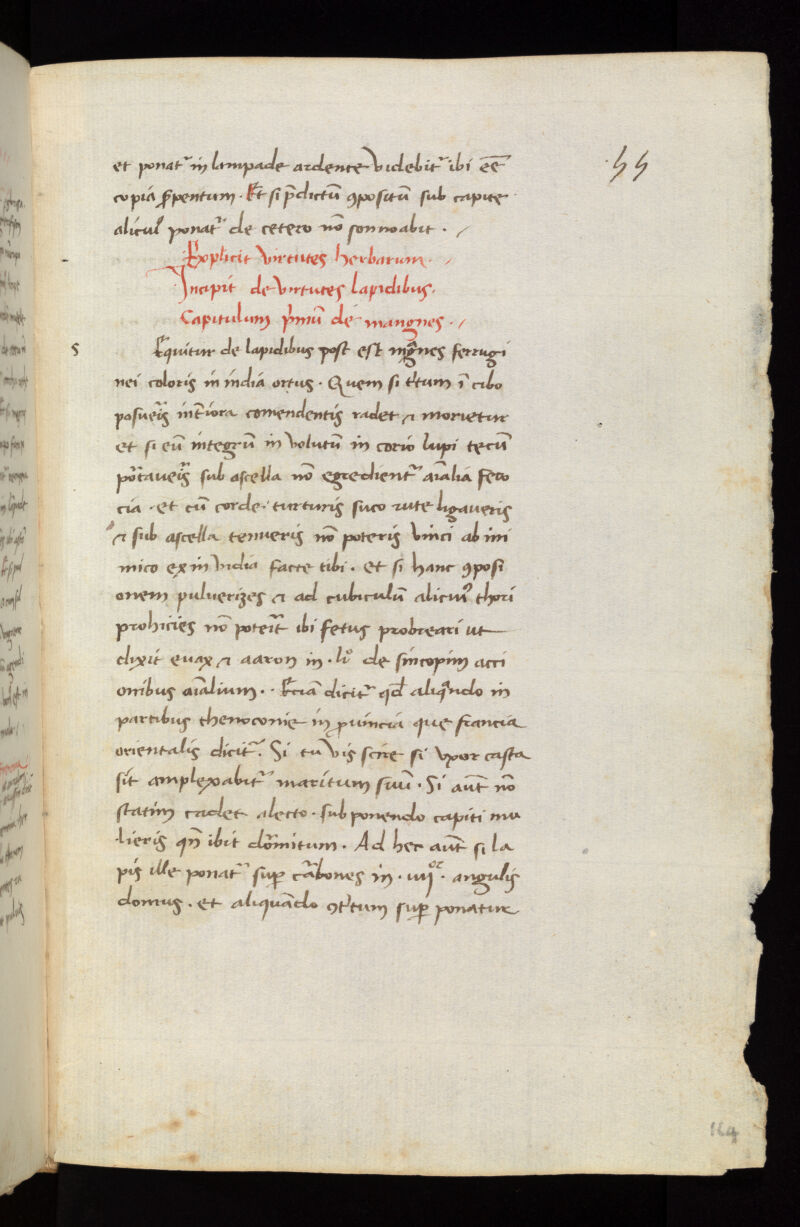 55
et ponat᷑ in lampade ardente videbit᷑ ibi eē
copia ẜpentum · Et si p̄dictū ꝯpositū sub capite
alicuiꝰ ponat᷑ de cetero nō sonnoabit ·
Explicit virtutes herbarum ·
Incipit de virtutes lapidibus ·
Capitulum p̓mū de mangnes ·
s Equitur de lapidibus post est mg̃nes ferrugi
nei coloris in india ortus · Quem si t̓tum ī cibo
posueris int̓iora comendentis radet ⁊ morietur
et si eū integrū in volutū in corio lupi tecū
portaveris sub ascella nō egredient᷑ aīalia fero
cia · et cū corde · turturis suco rute ligaveris
⁊ sub ascella tenueris nō poteris vinci ab ini
mico ex in vidia facte tibi · et si hanc ꝯposi
onem pulverizes ⁊ ad cubiculū alicuiꝰ thori
prohicies nō poterit ibi fetus probreari ut
dixit evax ⁊ aaron in · liº de sincopim acci
onibus aīalium · · Eciam dicit᷑ qd̄ aliqn̄do in
partibus thenoconie in provincia que francia
orientalis dicit᷑ · Si tu vis scire si vxor casta
sit amplexabit᷑ maritum suū · Si aūt nō
statim cadet alecto · sub ponendo capiti mu
lieris qn̄ ibit dormitum · Ad hec aūt si la
pis ille ponat᷑ suꝑ carbones in · iiijᵒʳ · angulis
domus · et aliquando ꝯt̓tum suꝑ ponatur